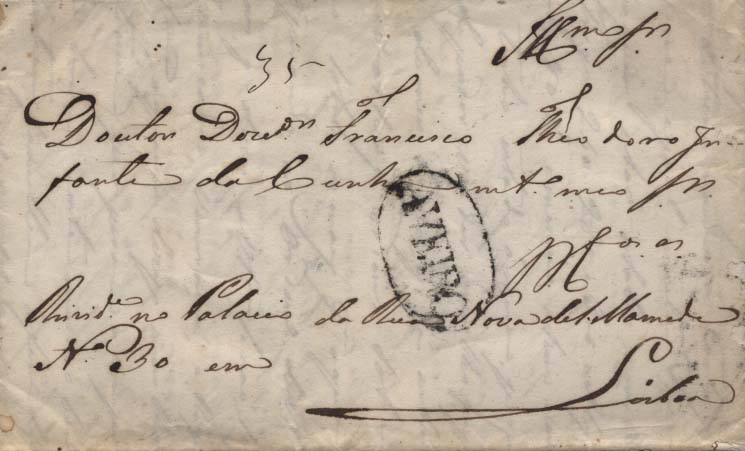 Illmo Sr
35
Doutor Francisco Theodoro In-
fante da Cunha mto meu Sr
AVEIRO
Rezide no Palacio da Rua Nova de S. Mamede
No 30 em
Lisboa